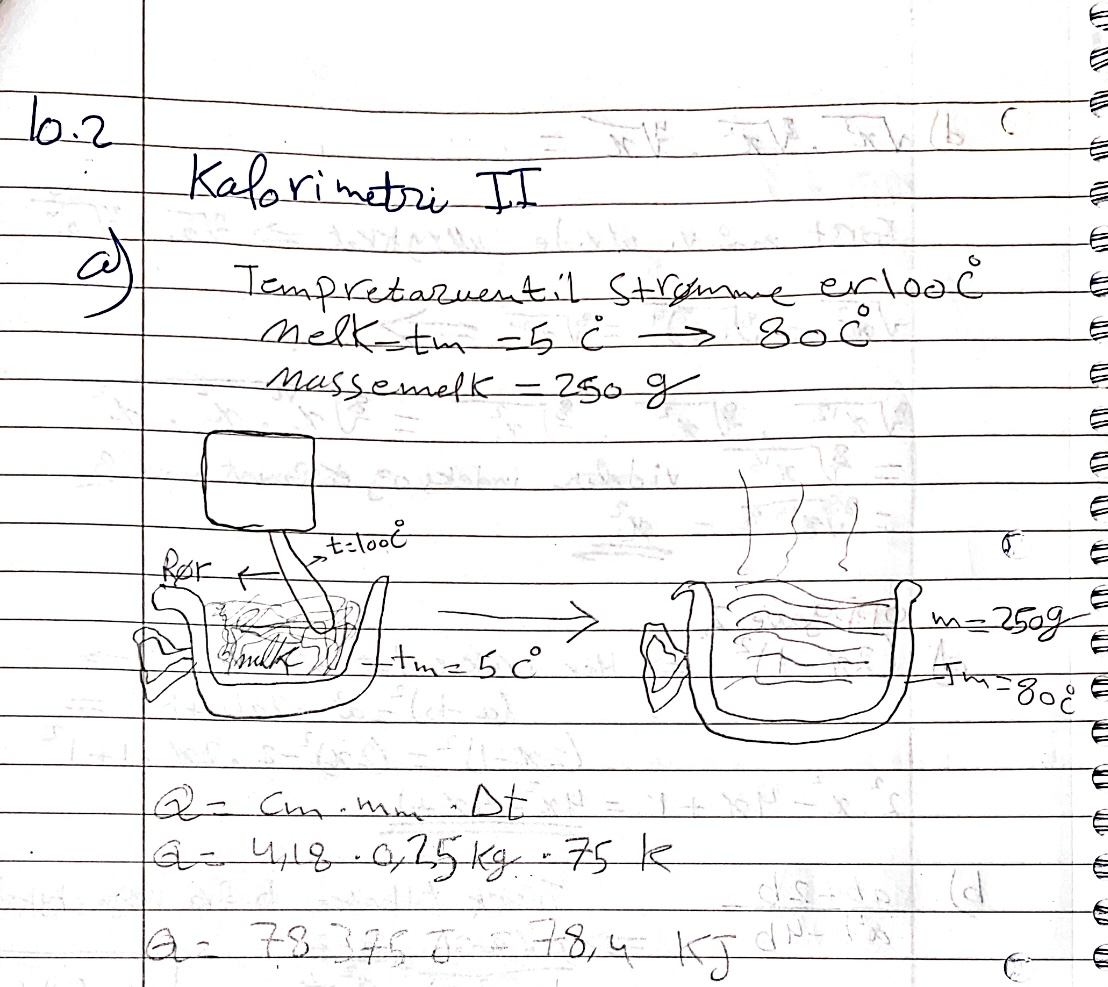 10.2
Kalorimetri II
a)
Tempretaruentil strømme er 100 C°
Melk = tm = 5 C° → 80 C°
Masse melk = 250 g
t=100C°
Rør
melk
tm = 5 C°
m = 250g
Tm = 80C°
Q = cm · mm · Δt
Q = 4,18 · 0,25 kg · 75 k
Q = 78 375 J = 78,4 KJ